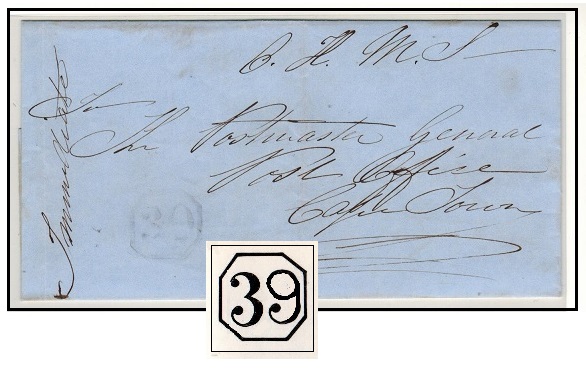 O. H. M. S.
To
The Postmaster General
Post Office
Cape Town
Immediate
39
39